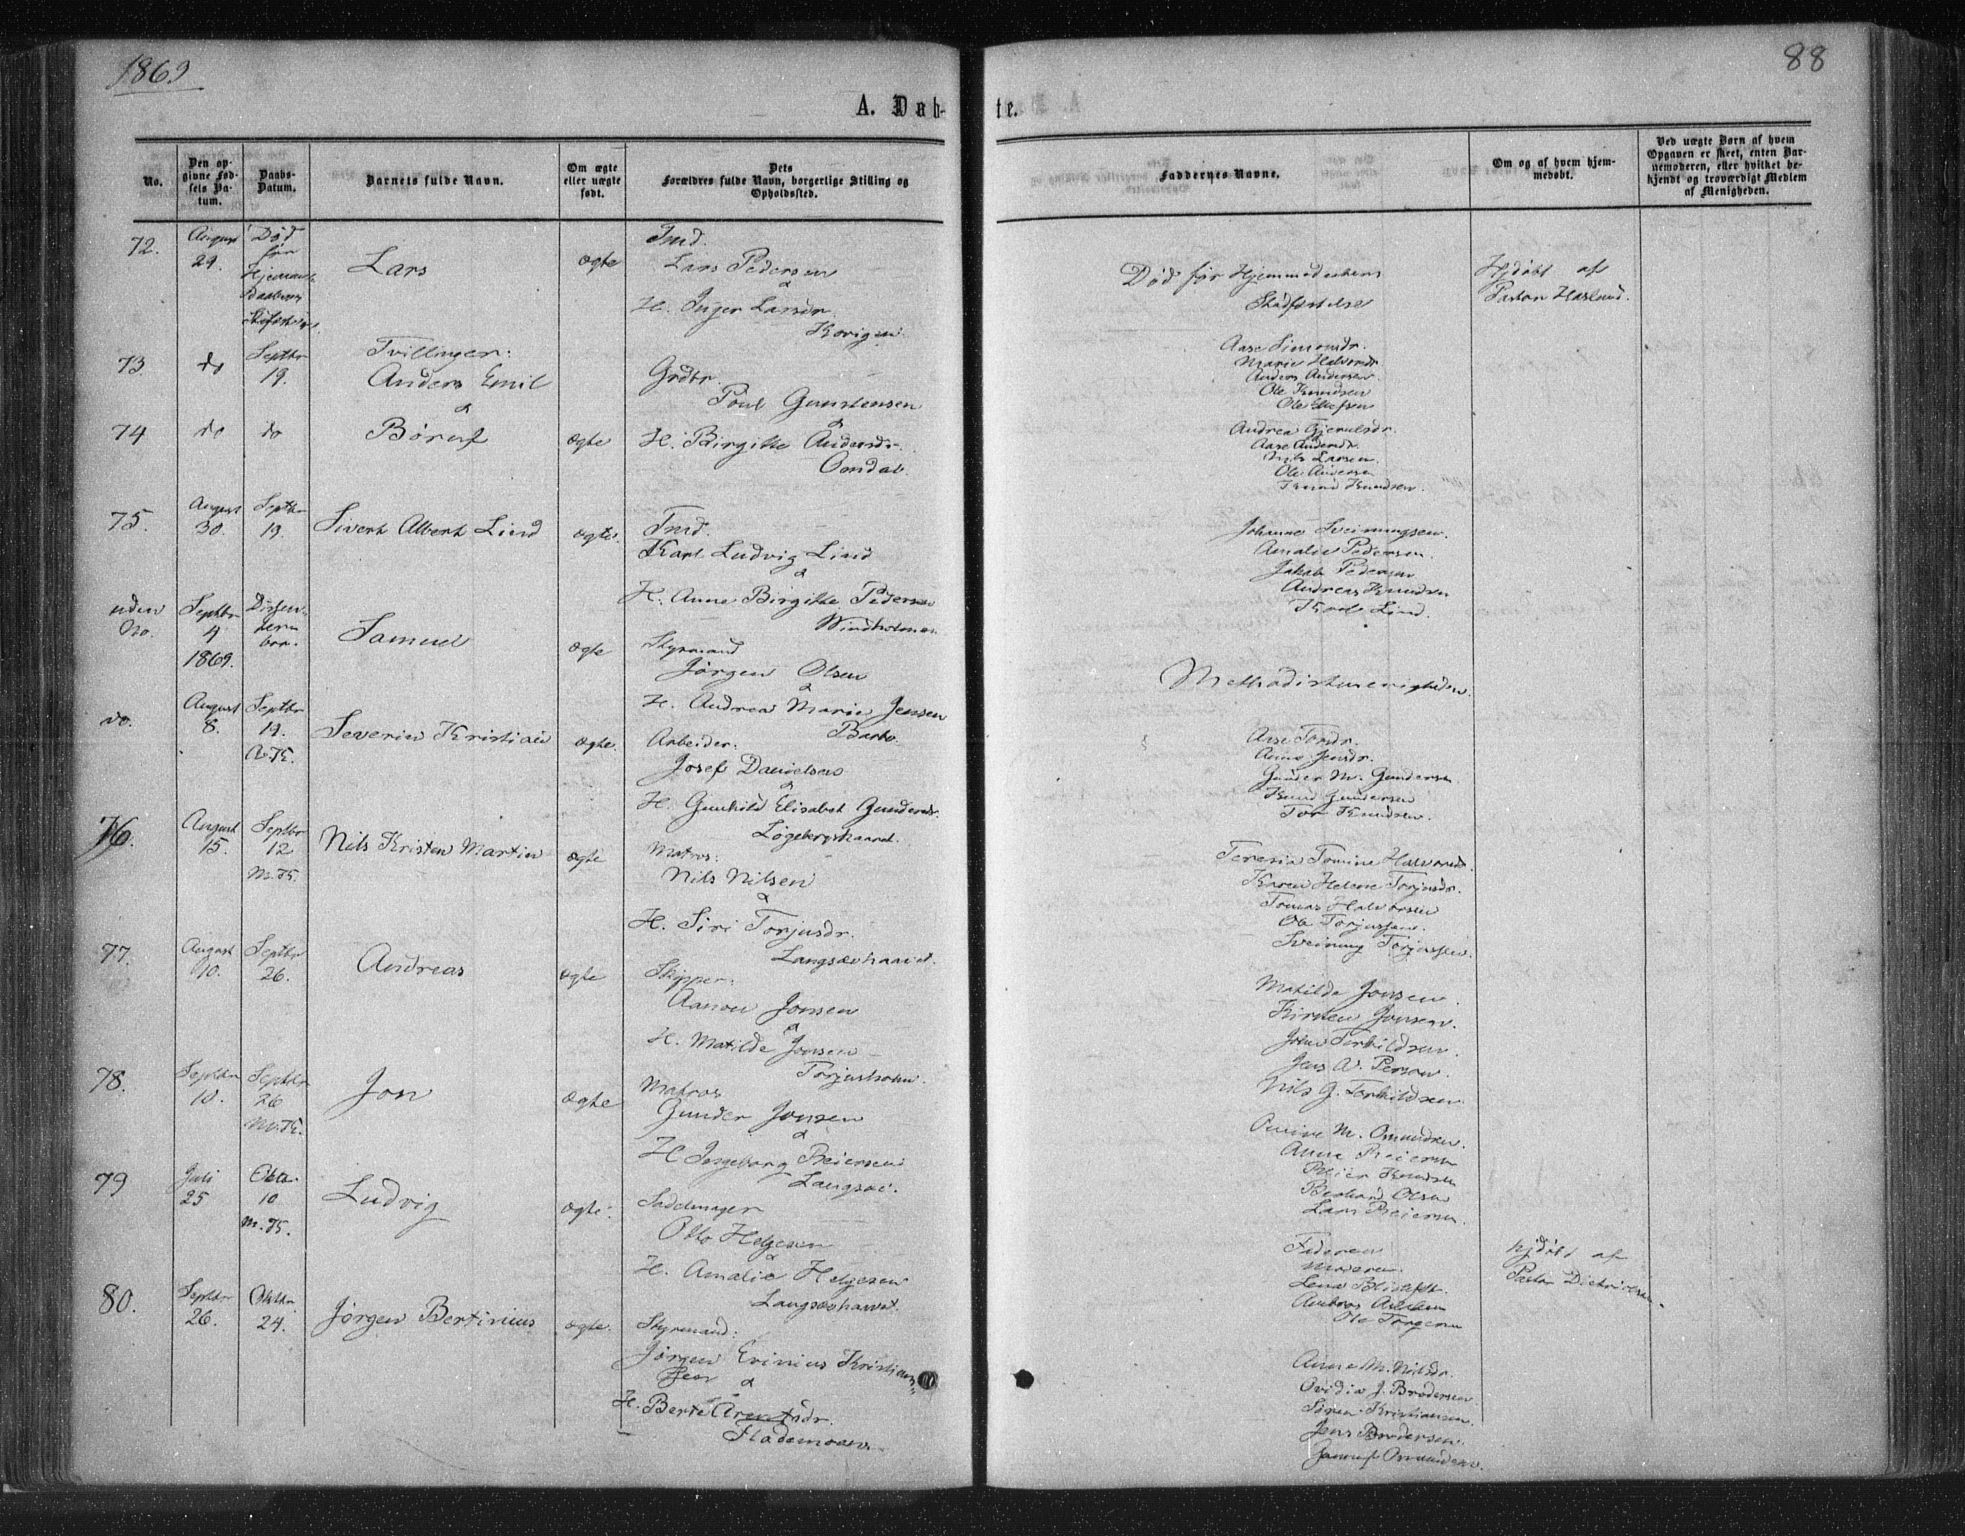 1869
88
A. Døb-
te.
No.
Den op-
givne Fød-
sels Da-
tum.
Daabs-
Datum.
Barnets fulde Navn.
Om ægte
eller uægte
født.
Dets
Forældres fulde Navn, borgerlige Stilling og
Opholdssted.
Faddernes Navne.
Om og af hvem hjem-
medøbt.
Ved uægte Børn af hvem
Opgaven er skeet, enten Bar-
nemoderen, eller hvilket be-
kjendt og troværdigt Medlem
af Menigheden.
72.
August
29.
Død
før
Lars
ægte
Inds.
Lars Pedersen
&
H. Inger Larsdr.
Død før Hjemmedaabens
Stadfæstelse
Hjdøbt af
Pastor Haslund.
73.
do
Septbr
19.
Tvillinger:
Anders Emil
&
Grdbr.
Poul Gunstensen
&
Aase Simonsdr.
Marie Halvorsdr.
Anders Andersen.
Ole Knudsen
74
do
do
ægte
H. Birgitte Andersdr.
Omdal.
Aase Andersdr.
Nils Larsen
Ole Andersen
Knud Knudsen.
75.
August
30.
Septbr
19.
Sivert Albert Lind
ægte.
Karl Ludvig Lind
&
H. Anne Birgitte Pedersen
Windholmen
Amalie Pedersen.
Jakob Pedersen
Andreas Knudsen
Karl Lind.
uden
No.
Septbr
4
1869.
Samuel
ægte
Styrmand
Jørgen Olsen
&
H. Andrea Marie Jensen
Barbo.
Methodistmenigheden.
do.
August
8.
Septbr
19.
Severin Kristian
ægte.
Arbeider.
Josef Danielsen
&
H. Gunhild Elisabet Gundersdr.
Aase Torsdr.
Anne Jensdr.
Gunder M. Gundersen
Knud Gundersen
Tor Knudsen.
76.
August
15.
Septbr
12
M.K.
Nils Kristen Martin
ægte
Matros.
Nils Nilsen
&
H. Siri Torjusdr.
Langsæehaavet.
Teresia Tomine Halvorsdr.
Karen Helene Torjusdr.
Tomas Halvorsen
Ole Torjussen.
Sveinung Torjussen.
77.
August
10.
Septbr
26.
Andreas
ægte
Skipper.
Aanon Jonsen
&
H. Matilde Jonsen
Torjusholm.
Matilde Jonsen.
Kirsten Jonsen.
John Terkildsen.
Nils G. Terkildsen.
78.
Septbr
10.
Septbr
26
M.K.
Jon
ægte
Matros
Gunder Jonsen
&
H. Ingeborg Reiersen
Langsæe.
Anne Reiersen
Reier Knudsen
Lars Reiersen.
79
Juli
25
Oktbr.
10.
M.K.
Ludvig
ægte.
Sadelmager
Otto Helgesen
&
H. Amalie Helgesen
Langsæehaavet.
Faderen
Moderen
Ole Torgersen
Hjdøbt af
Pastor Dietrichson.
80.
Septbr
26.
Oktbr.
24.
Jørgen Bertinius
ægte.
Styrmand:
Jørgen Evinius Kristian-
sen
&
H. Berte Arentsdr.
Flademoen.
Anne M. Nilsdr.
Ovidia J. Brodersen
Søren Kristiansen.
Jens Brodersen.